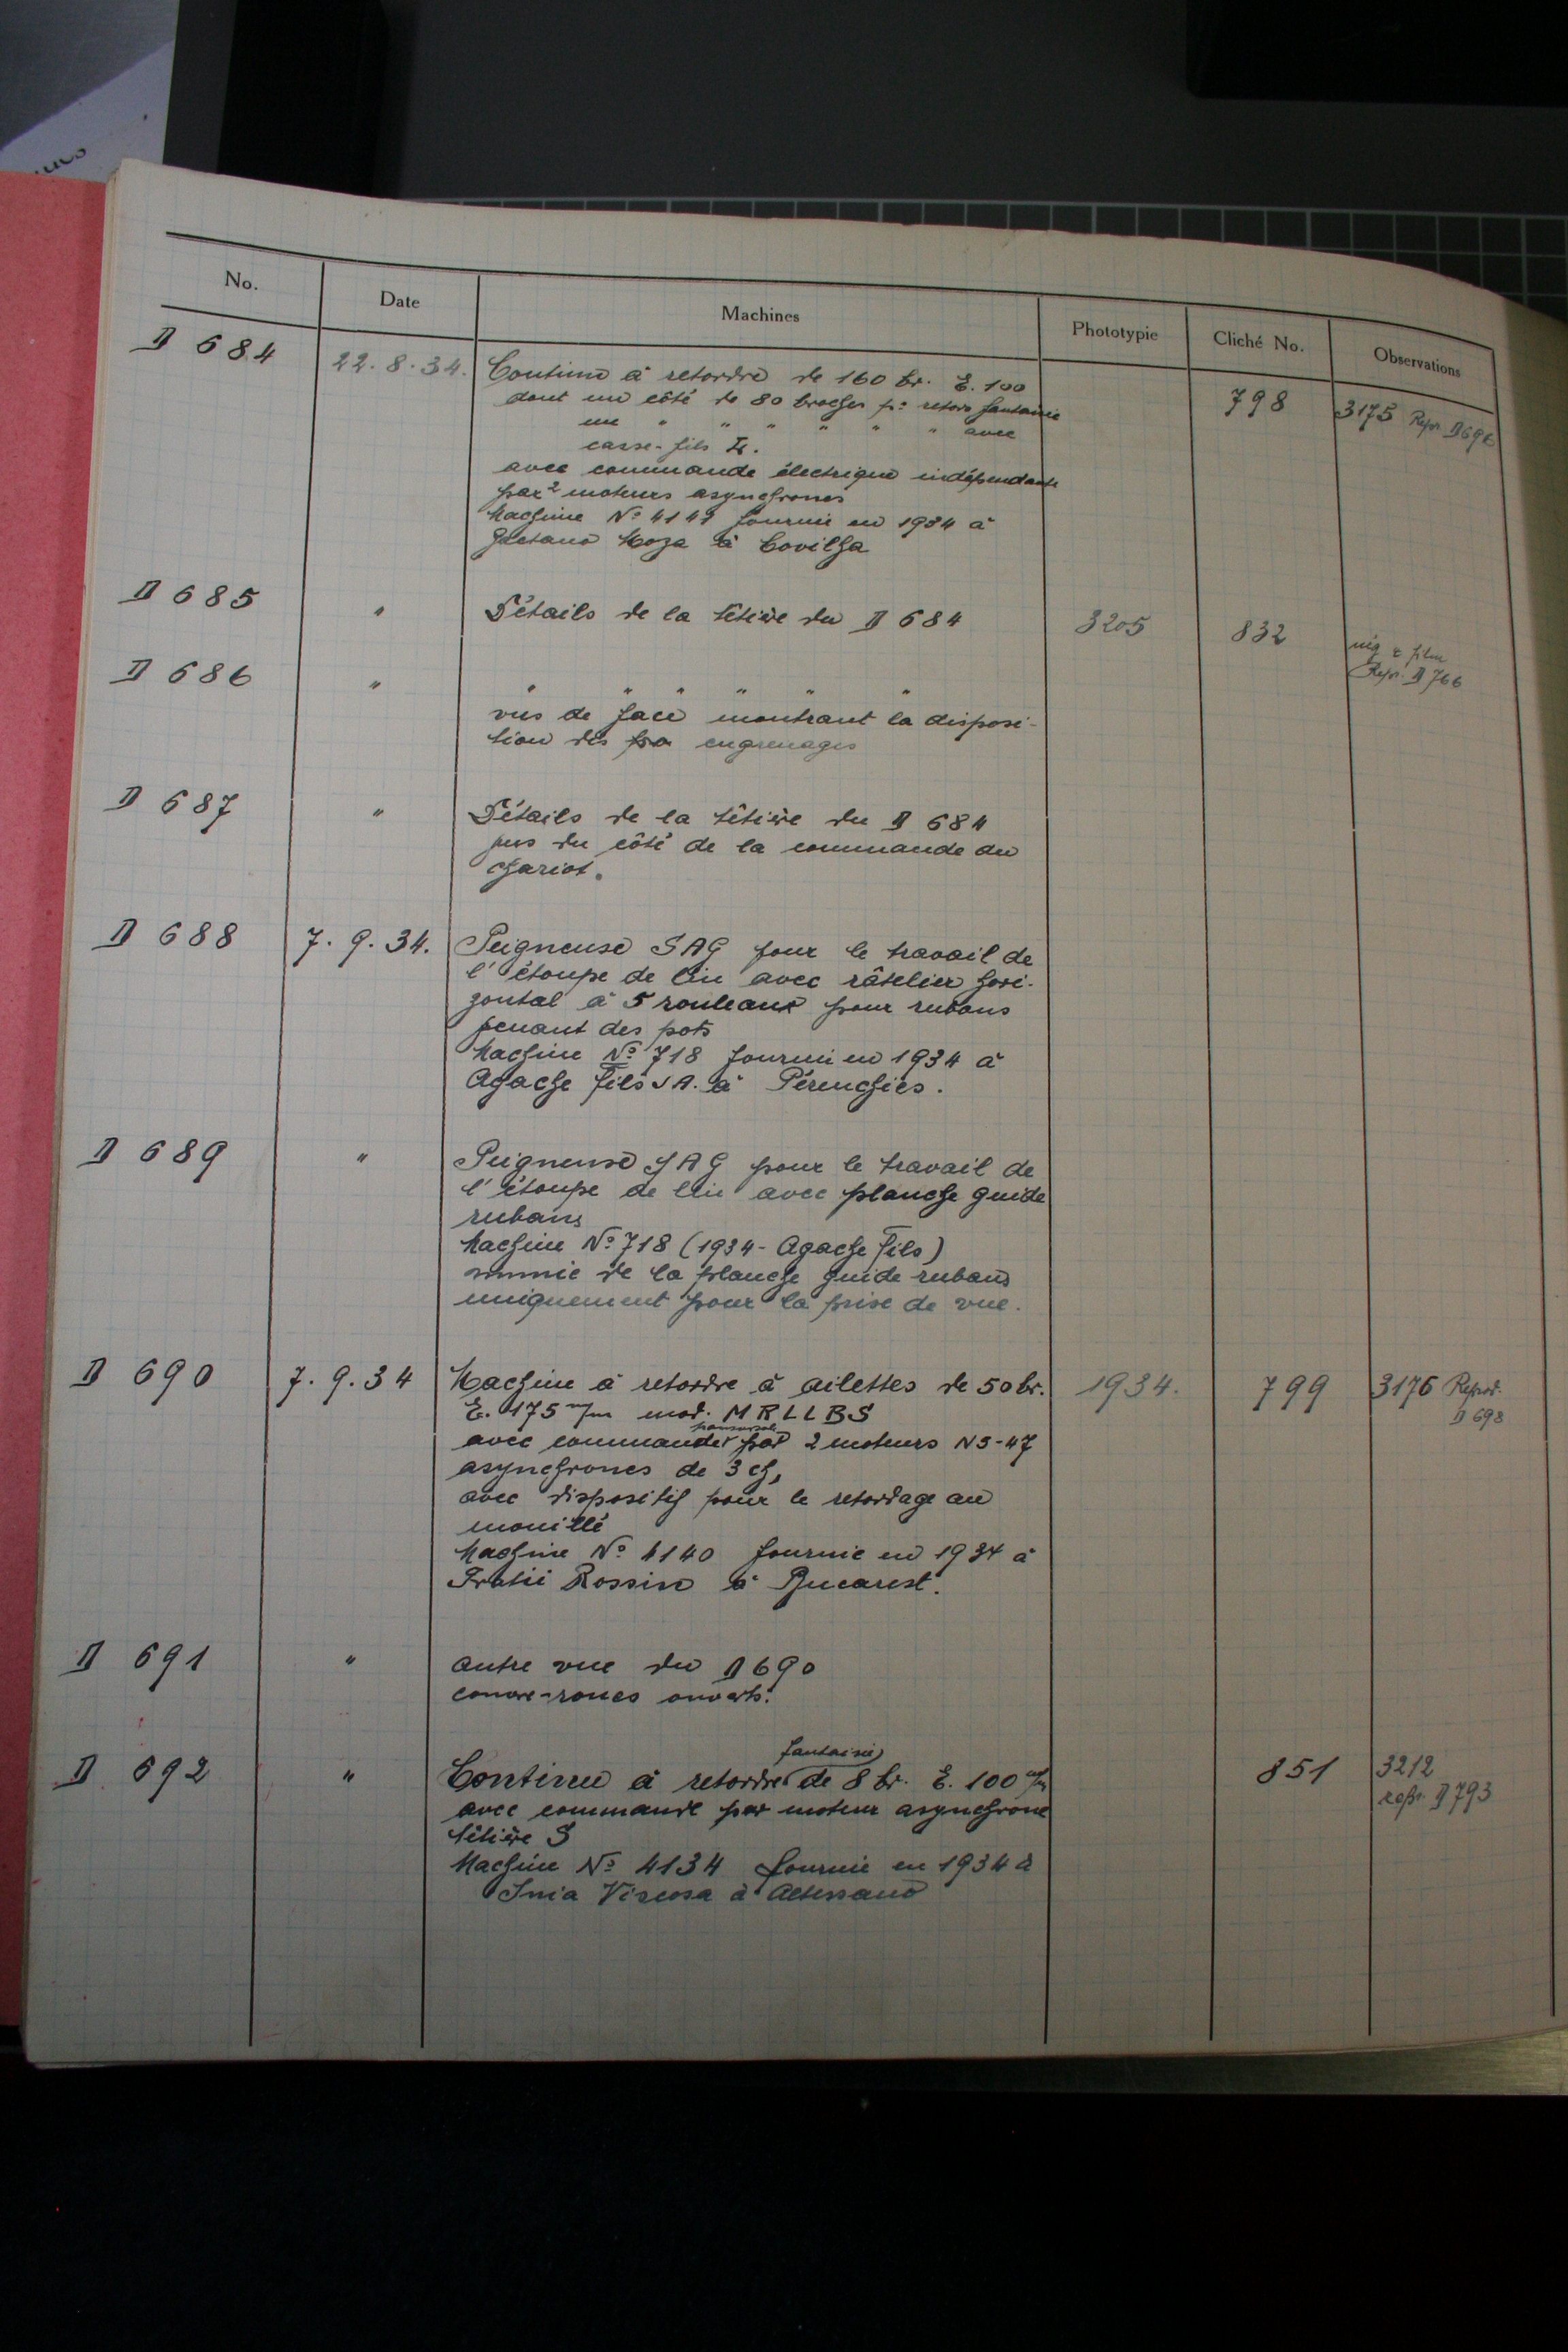 No. Date Machines Phototypie Cliché No. Observations
D 684 22.8.34. Continu à retordre de 160 br. E. 100 798 3175 Repr. D 696
dont un côté de 80 broches pr retors fantaisie
une " " " " " " avec
casse-fils
avec commande électrique indépendante
par 2 moteurs asynchrones
Machine No 4141 fournie en 1934 à
à Covilha
D 685 " Détails de la têtière du D 684 3205 832 nég. film
Repr. D 766
D 686 " " " " " " "
vus de face montrant la disposi-
tion des engrenages
D 687 " Détails de la têtière du D 684
pris du côté de la commande du
chariot.
D 688 7.9.34. Peigneuse SAG pour le travail de
l'étoupe de lin avec râtelier hori-
zontal à 5 rouleaux pour rubans
venant des pots
Machine No 718 fournie en 1934 à
Agache Fils S A. à Pérenchies.
D 689 " Peigneuse SAG pour le travail de
l'étoupe de lin avec planche guide
rubans
Machine No 718 (1934 - Agache Fils)
munie de la planche guide rubans
uniquement pour la prise de vue.
D 690 7.9.34 Machine à retordre à ailettes de 50 br. 1934. 799 3176 Reprod.
D 698
E. 175 m/m mod. MRLLBS
avec commande par 2 moteurs NS-47
asynchrones de 3 ch,
avec dispositif pour le retordage au
mouillé
Machine No 4140 fournie en 1934 à
Fratii Rossin à Bucarest.
D 691 " autre vue du D 690
couvre-roues ouverts.
fantaisie
D 692 " Continu à retordre de 8 br. E. 100 m/m 851 3212
repr. D 793
avec commande par moteur asynchrone
têtière S
Machine No 4134 fournie en 1934 à
Snia Viscosa à Altessano